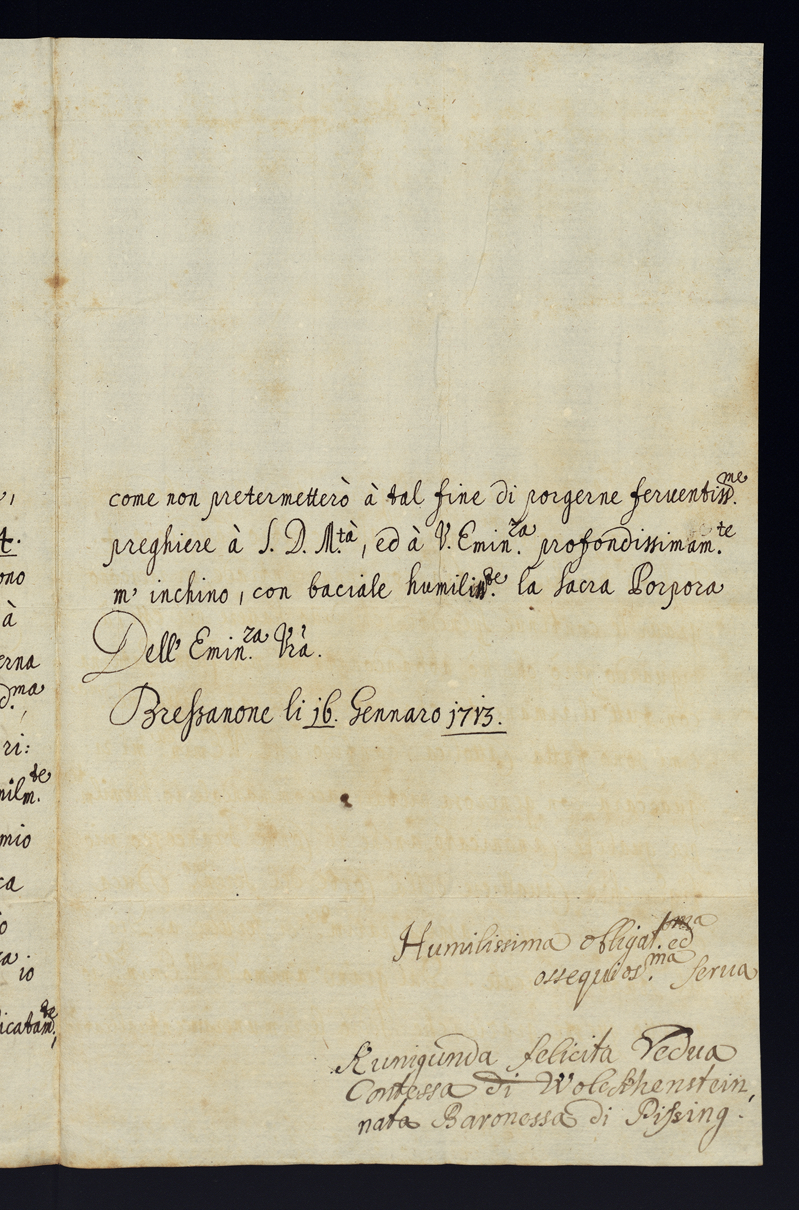 come non pretermetterò à tal fine di porgerne feruentiss.me
preghiere à S. D. M.tà, ed à V. Emin.za profondissimam.te
m' inchino, con baciale humilm.te la Sacra Porpora
Dell' Emin.za Vrà.
Bressanone li 16. Gennaro 1713.
Humilissima obligat.ma ed
ossequios.ma serua
Kunigunda felicita Vedua
Contessa di Wolckhenstein,
nata Baronessa di Pissing.
erna
mio
io